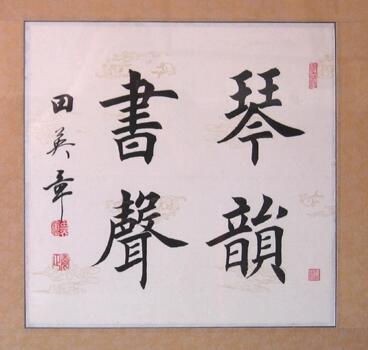 琴韻
書聲
田英章